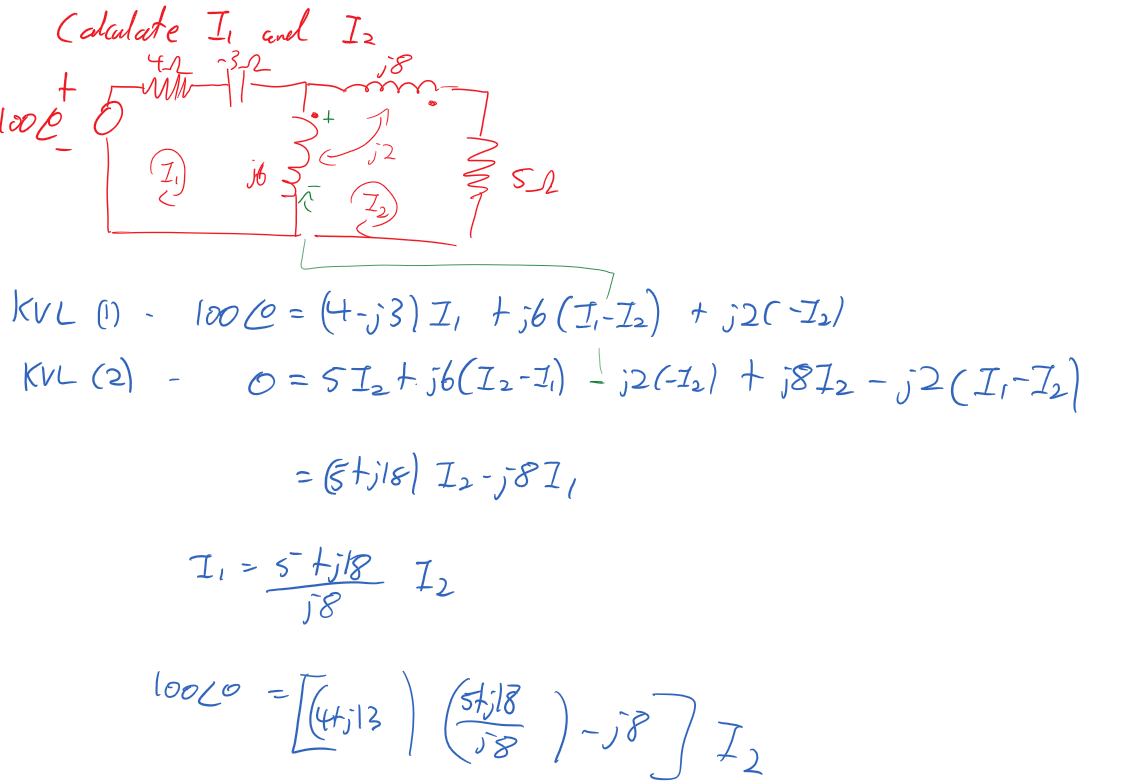 Calculate I₁ and I₂
4Ω -3Ω j8
+
100∠0
-
I₁ j6 + - j2 I₂ 5Ω
KVL (1) - 100∠0 = (4-j3) I₁ + j6 (I₁-I₂) + j2(-I₂)
KVL (2) - 0 = 5I₂ + j6(I₂-I₁) - j2(-I₂) + j8I₂ - j2(I₁-I₂)
= (5+j18) I₂ - j8I₁
I₁ = 5+j18 / j8 I₂
100∠0 = [(4+j13) (5+j18 / j8) - j8] I₂